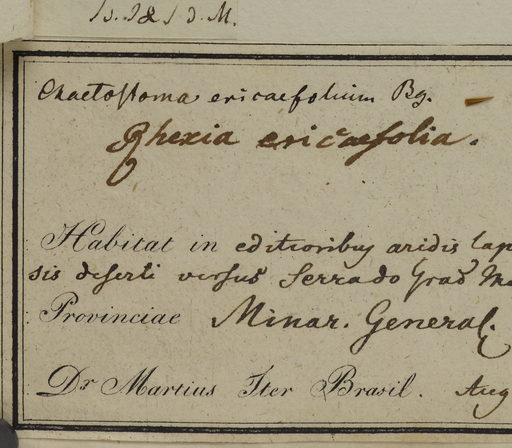 Chaetostoma ericaefolium Bg.
Rhexia ericaefolia.
Habitat in editioribus aridis lap
sis deserti versus Serra do Grad Mo
Provinciae Minar. General.
Dr Martius Iter Brasil. Aug